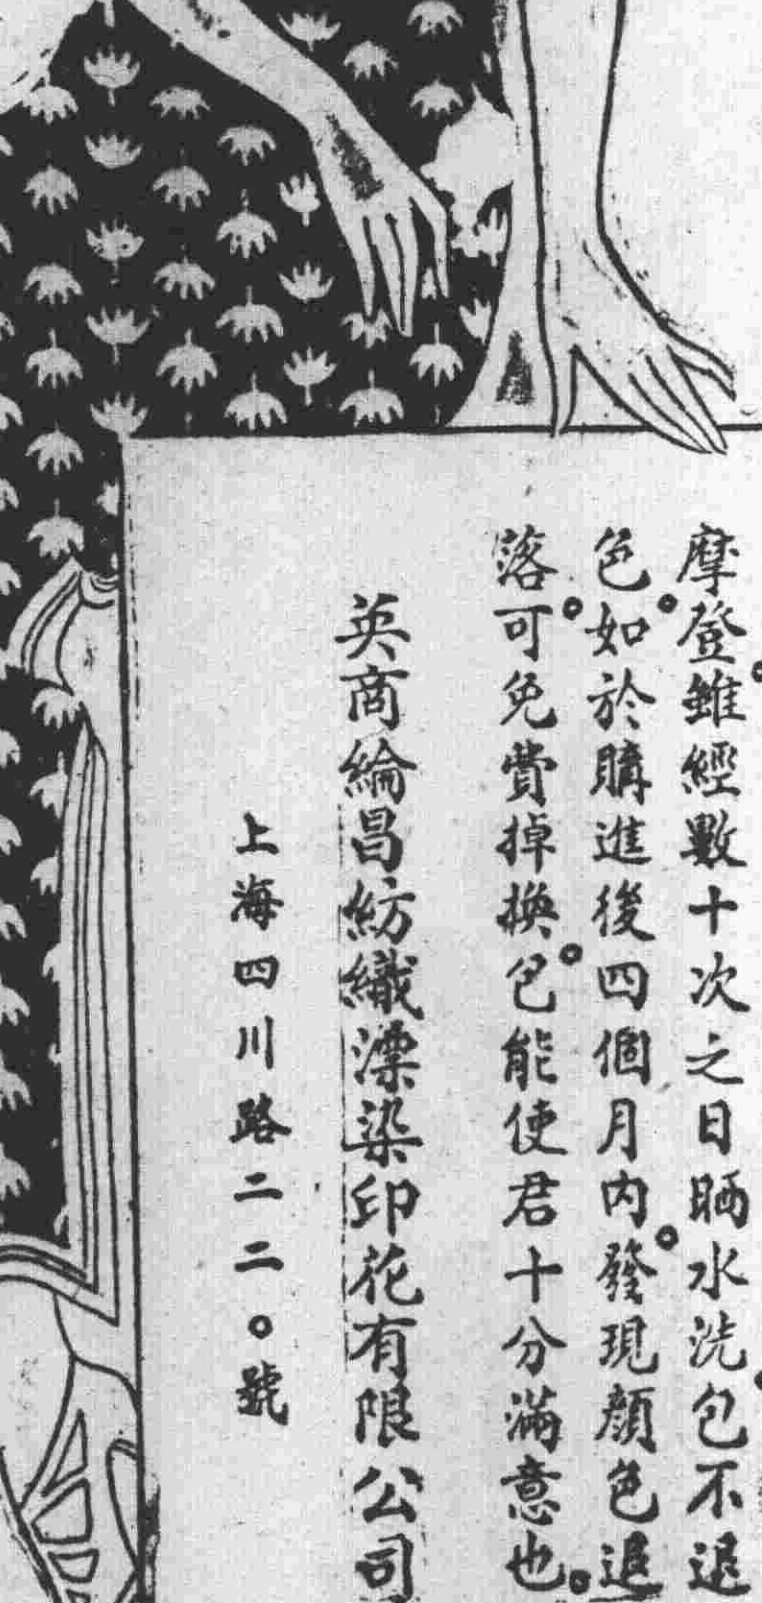 摩登。雖經數十次之日晒水洗。包不退
色。如於購進後四個月內。發現顏色退
落。可免費掉換。包能使君十分滿意也。
英商綸昌紡織漂染印花有限公司
上海四川路二二〇號